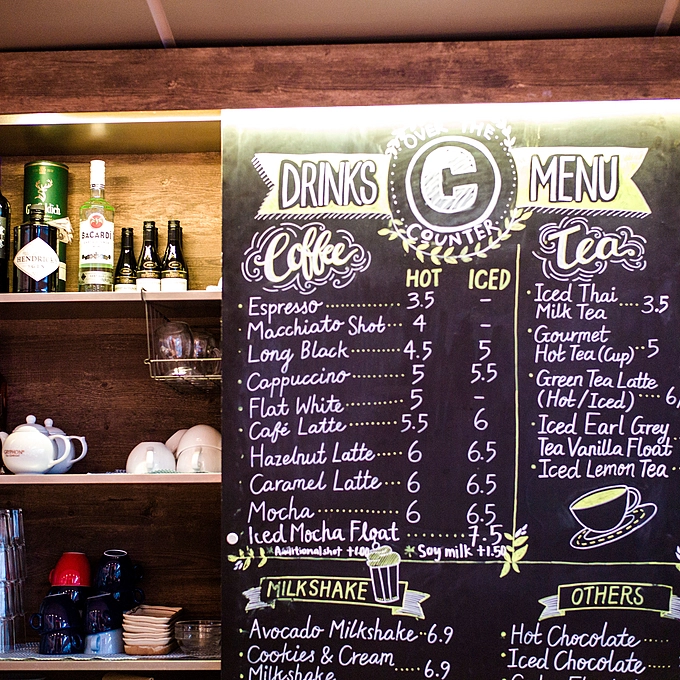 OVER THE
DRINKS C MENU
COUNTER
Coffee
HOT ICED
Espresso 3.5 –
Macchiato Shot 4 –
Long Black 4.5 5
Cappuccino 5 5.5
Flat White 5 –
Café Latte 5.5 6
Hazelnut Latte 6 6.5
Caramel Latte 6 6.5
Mocha 6 6.5
Iced Mocha Float 7.5
*Additional shot +1.00 *Soy milk +1.50
Tea
Iced Thai
Milk Tea 3.5
Gourmet
Hot Tea (Cup) 5
Green Tea Latte
(Hot/Iced)
Iced Earl Grey
Tea Vanilla Float
Iced Lemon Tea
MILKSHAKE
Avocado Milkshake 6.9
Cookies & Cream
Milkshake 6.9
OTHERS
Hot Chocolate
Iced Chocolate
HENDRICK'S
BACARDÍ